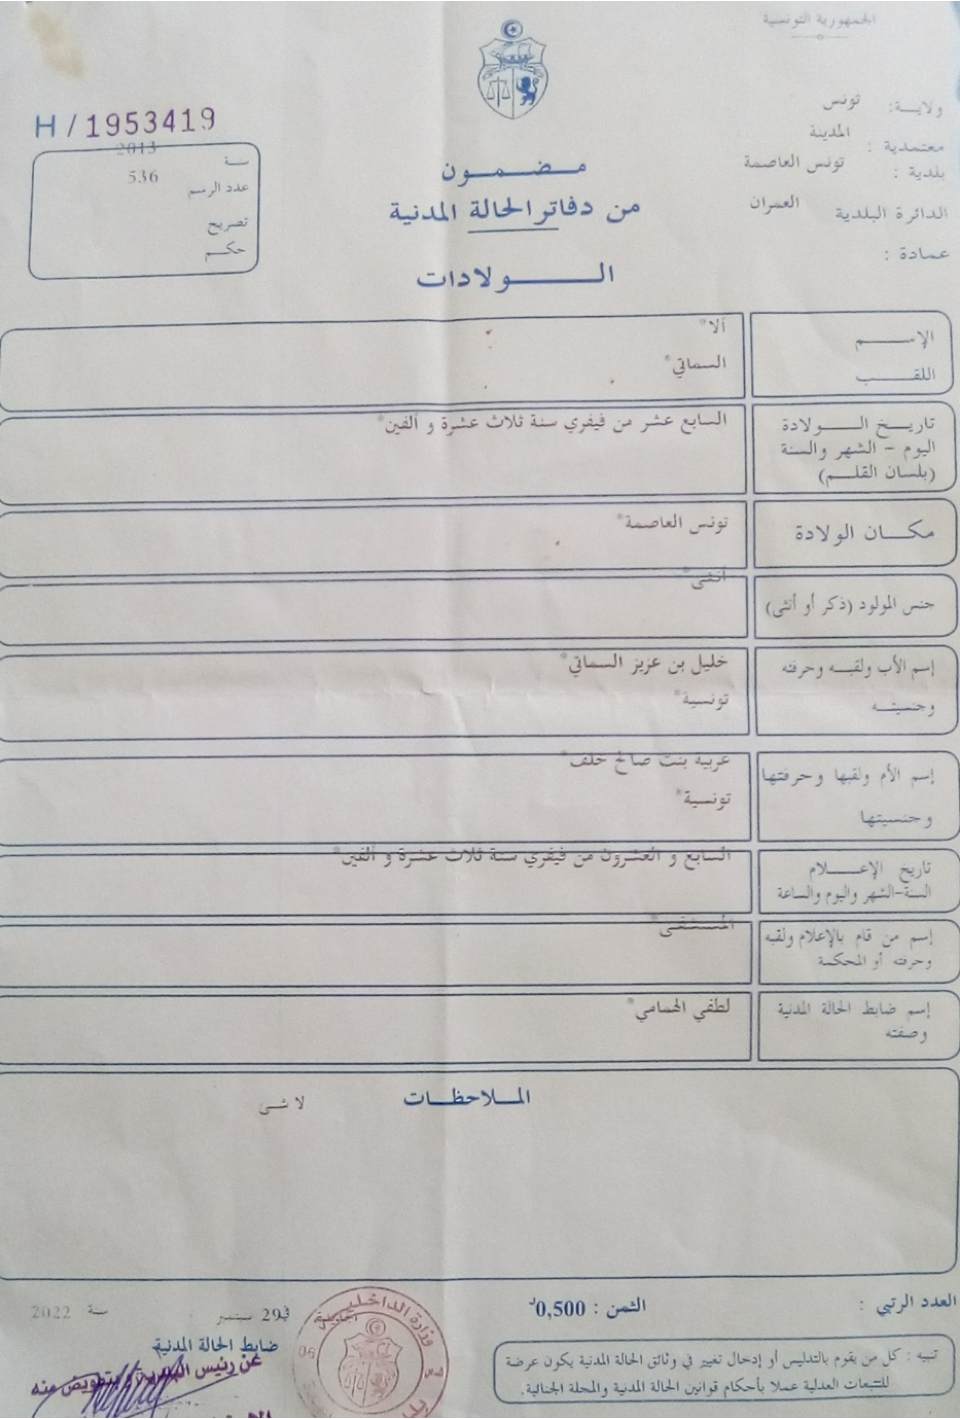 الجمهورية التونسية
ولاية: تونس
معتمدية : المدينة
بلدية : تونس العاصمة
الدائرة البلدية العمران
عمادة :
H / 1953419
سنة 2013
عدد الرسم 536
تصريح
حكم
مضمون
من دفاتر الحالة المدنية
الولادات
الإسم ألا*
اللقب السماتي*
تاريخ الولادة السابع عشر من فيفري سنة ثلاث عشرة و ألفين*
اليوم - الشهر والسنة
(بلسان القلم)
مكان الولادة تونس العاصمة*
جنس المولود (ذكر أو أنثى) أنثى*
إسم الأب ولقبه وحرفته خليل بن عزيز السماتي*
وجنسيته تونسية*
إسم الأم ولقبها وحرفتها عربية بنت صالح خلف*
وجنسيتها تونسية*
تاريخ الإعلام السابع و العشرون من فيفري سنة ثلاث عشرة و ألفين*
السنة-الشهر واليوم والساعة
إسم من قام بالإعلام ولقبه المستشفى*
وحرفته أو المحكمة
إسم ضابط الحالة المدنية لطفي الهمامي*
وصفته
الملاحظات
لا شى
العدد الرتبي :
الثمن : 0,500د
تنبيه : كل من يقوم بالتدليس أو إدخال تغيير في وثائق الحالة المدنية يكون عرضة
للتتبعات العدلية عملا بأحكام قوانين الحالة المدنية والمجلة الجنائية.
29 سبتمبر سنة 2022
ضابط الحالة المدنية
عن رئيس البلدية وبتفويض منه
وزارة الداخلية
06